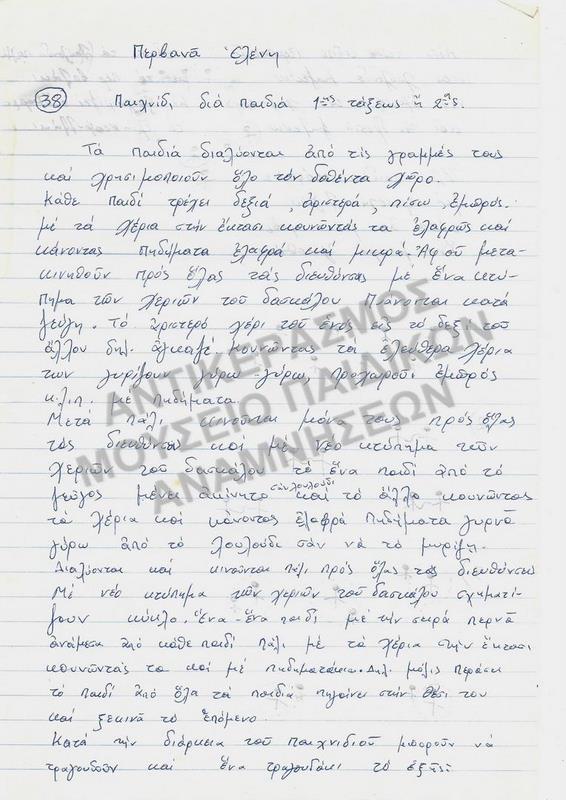 Περβανᾶ Ἑλένη
38 Παιχνίδι διά παιδιά 1ης τάξεως ἤ 2ας.
Τά παιδιά διαλύονται ἀπό τίς γραμμές τους
καί χρησιμοποιοῦν ὅλο τόν δοθέντα χῶρο.
Κάθε παιδί τρέχει δεξιά, ἀριστερά, πίσω, ἐμπρός.
μέ τά χέρια στήν ἔκτασι κουνῶντάς τα ἐλαφρῶς καί
κάνοντας πηδήματα ἐλαφρά καί μικρά. Ἀφοῦ μετα-
κινηθοῦν πρός ὅλας τάς διευθύνσεις μέ ἕνα κτύ-
πημα τῶν χεριῶν τοῦ δασκάλου πιάνονται κατά
ζεύγη. Τό ἀριστερό χέρι τοῦ ἑνός εἰς τό δεξί τοῦ
ἄλλου δηλ. ἀγκαζέ. κουνῶντας τά ἐλεύθερα χέρια
των γυρίζουν γύρω-γύρω, προχωροῦν ἐμπρός
κ.λ.π. μέ πηδήματα.
Μετά πάλι κινοῦνται μόνα τους πρός ὅλας
τάς διευθύνσεις καί μέ νέο κτύπημα τῶν
χεριῶν τοῦ δασκάλου τό ἕνα παιδί ἀπό τό
ζεῦγος μένει ἀκίνητο σάν λουλούδι καί τό ἄλλο κουνῶντας
τά χέρια καί κάνοντας ἐλαφρά πηδήματα γυρνᾶ
γύρω ἀπό τό λουλούδι σάν νά τό μυρίζῃ.
Διαλύονται καί κινοῦνται πάλι πρός ὅλας τάς διευθύνσεις
Μέ νέο κτύπημα τῶν χεριῶν τοῦ δασκάλου σχηματί-
ζουν κύκλο. Ἕνα-ἕνα παιδί μέ τήν σειρά περνᾶ
ἀνάμεσα ἀπό κάθε παιδί πάλι μέ τά χέρια στήν ἔκτασι
κουνῶντάς τα καί μέ πηδηματάκια. Δηλ. μόλις περάσει
τό παιδί ἀπό ὅλα τά παιδιά πηγαίνει στήν θέσι του
καί ξεκινᾶ τό ἑπόμενο
Κατά τήν διάρκεια τοῦ παιχνιδιοῦ μποροῦν νά
τραγουδοῦν καί ἕνα τραγουδάκι τό ἑξῆς:
ΑΝΤΙΚΕΡΑΣΜΟΣ
ΜΟΥΣΕΙΟ ΠΑΙΔΙΚΩΝ
ΑΝΑΜΝΗΣΕΩΝ